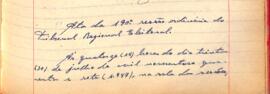 Ata da 190ª sessão ordinária do
Tribunal Regional Eleitoral.
Às quatorze (14) horas do dia trinta
(30) de julho de mil novecentos e qua-
renta e sete (1.947), na sala das sessões,